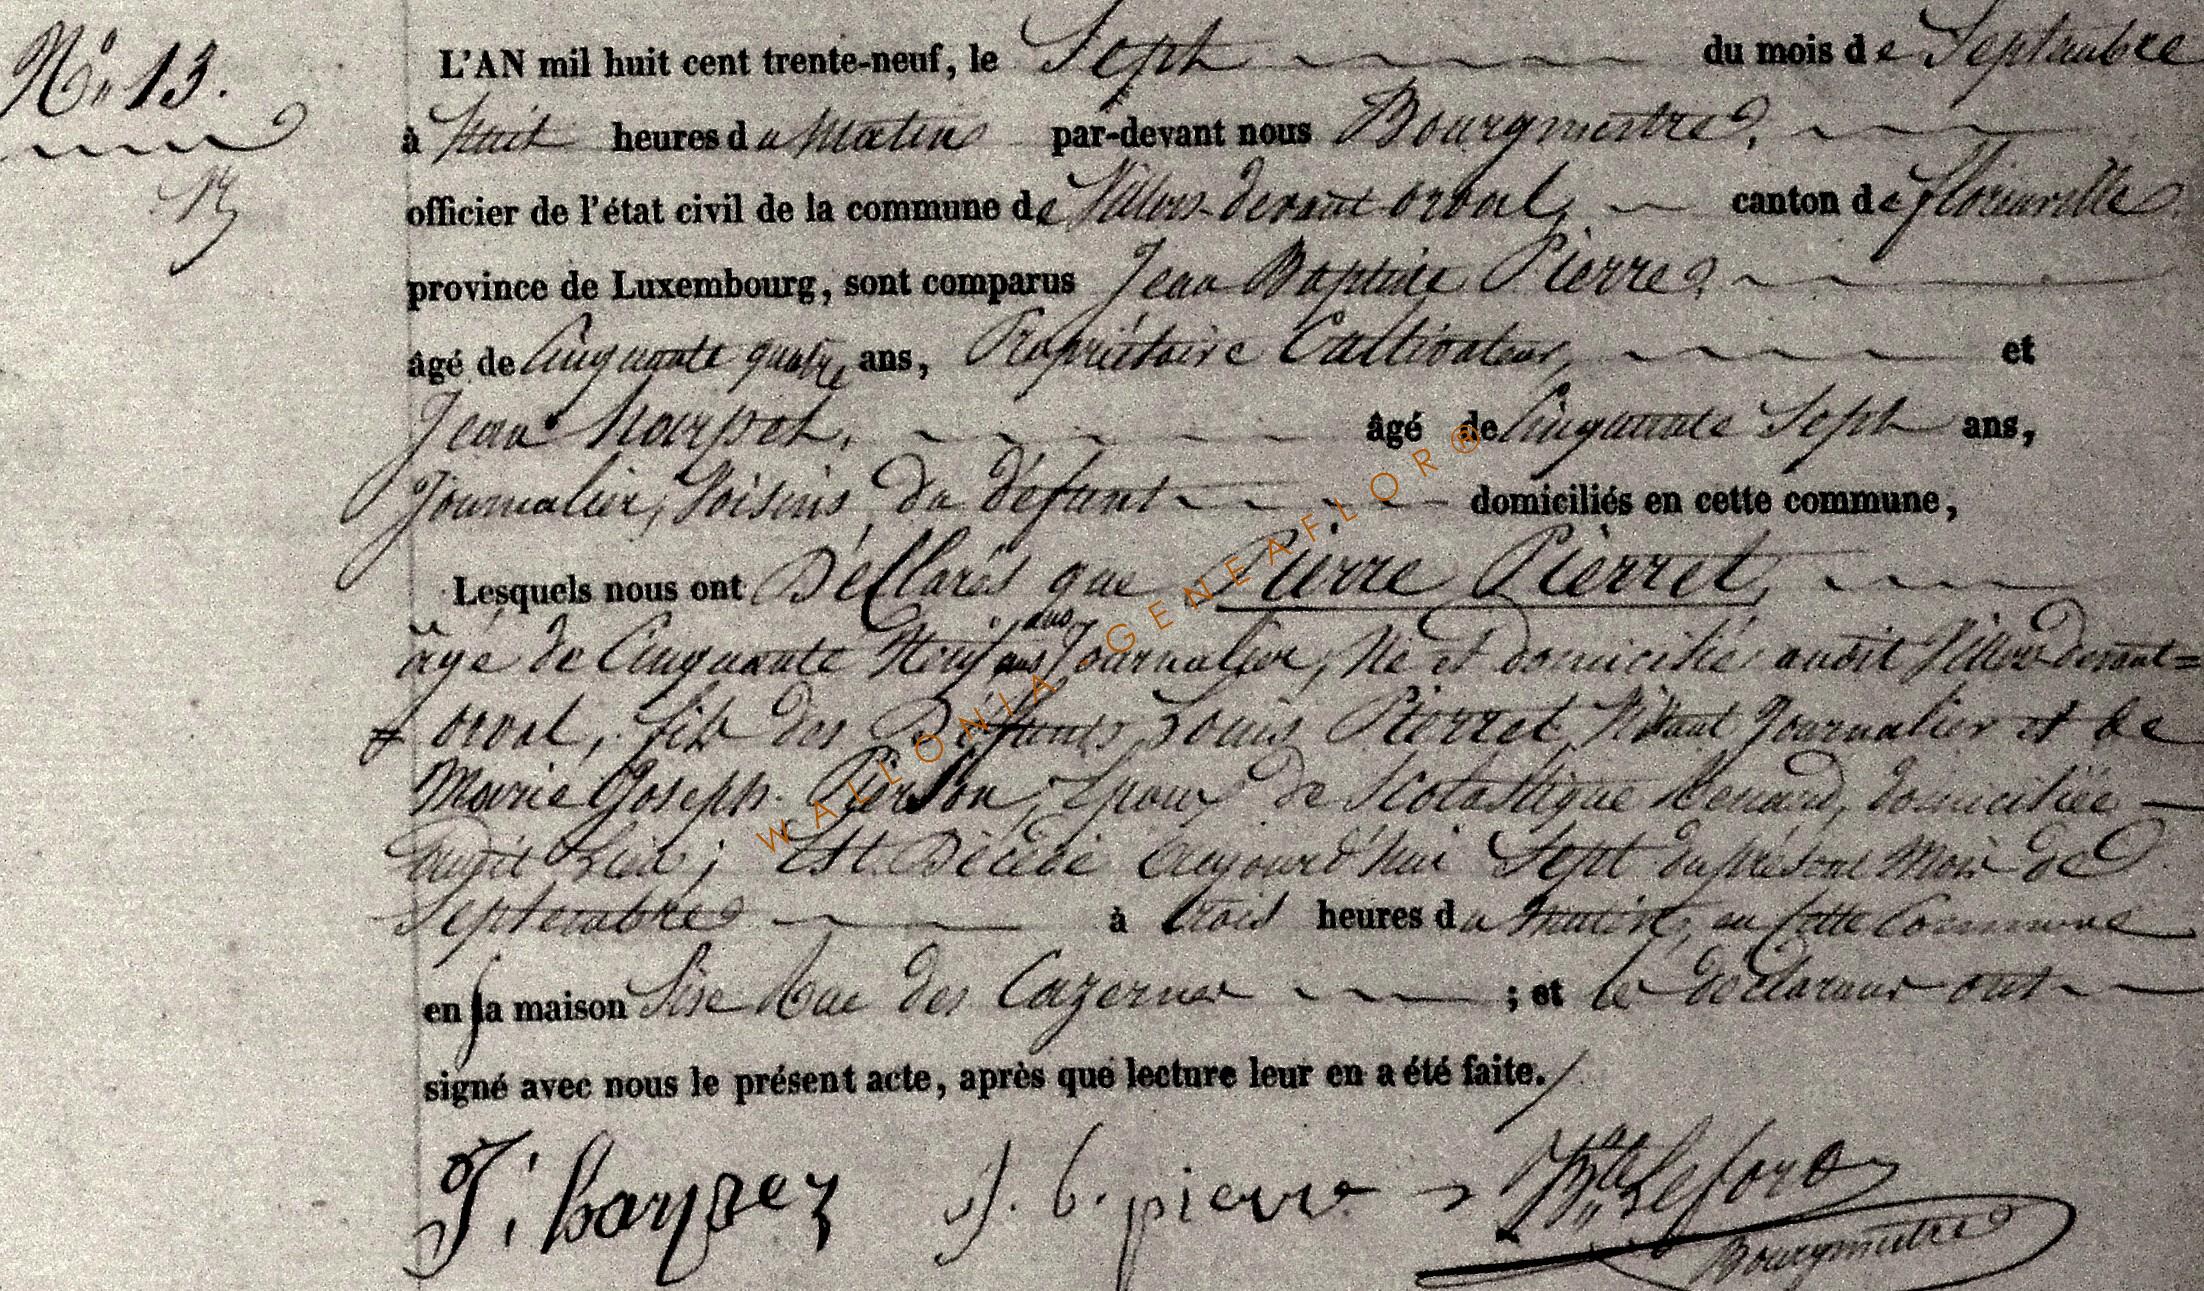 N° 13. L'AN mil huit cent trente-neuf, le Sept du mois de Septembre
à huit heures du Matin par-devant nous Bourgmestre,
13
officier de l'état civil de la commune de Villers-devant-orval, canton de florenville
province de Luxembourg, sont comparus Jean Baptiste Pierre,
âgé de Cinquante quatre ans, Propriétaire Cultivateur, et
Jean âgé de Cinquante Sept ans,
Journalier, Voisins du défunt domiciliés en cette commune,
Lesquels nous ont Déclarés que Pierre Pierret,
âgé de Cinquante Neuf ans Journalier, Né et domicilié audit Villers devant=
orval, fils des Défunts Louis Pierret, Vivant Journalier et de
Marie Joseph Pierson, Epoux de Scolastique Renard, domiciliée
audit Lieu; Est Décédé Aujourd'hui Sept du présent Mois de
Septembre à trois heures du matin, en cette Commune
en sa maison Sise Rue des Cazernes ; et les déclarans ont
signé avec nous le présent acte, après que lecture leur en a été faite.
J. j. b. pierre Bte Lefort
Bourgmestre
WALLONIA GENEAFLOR®